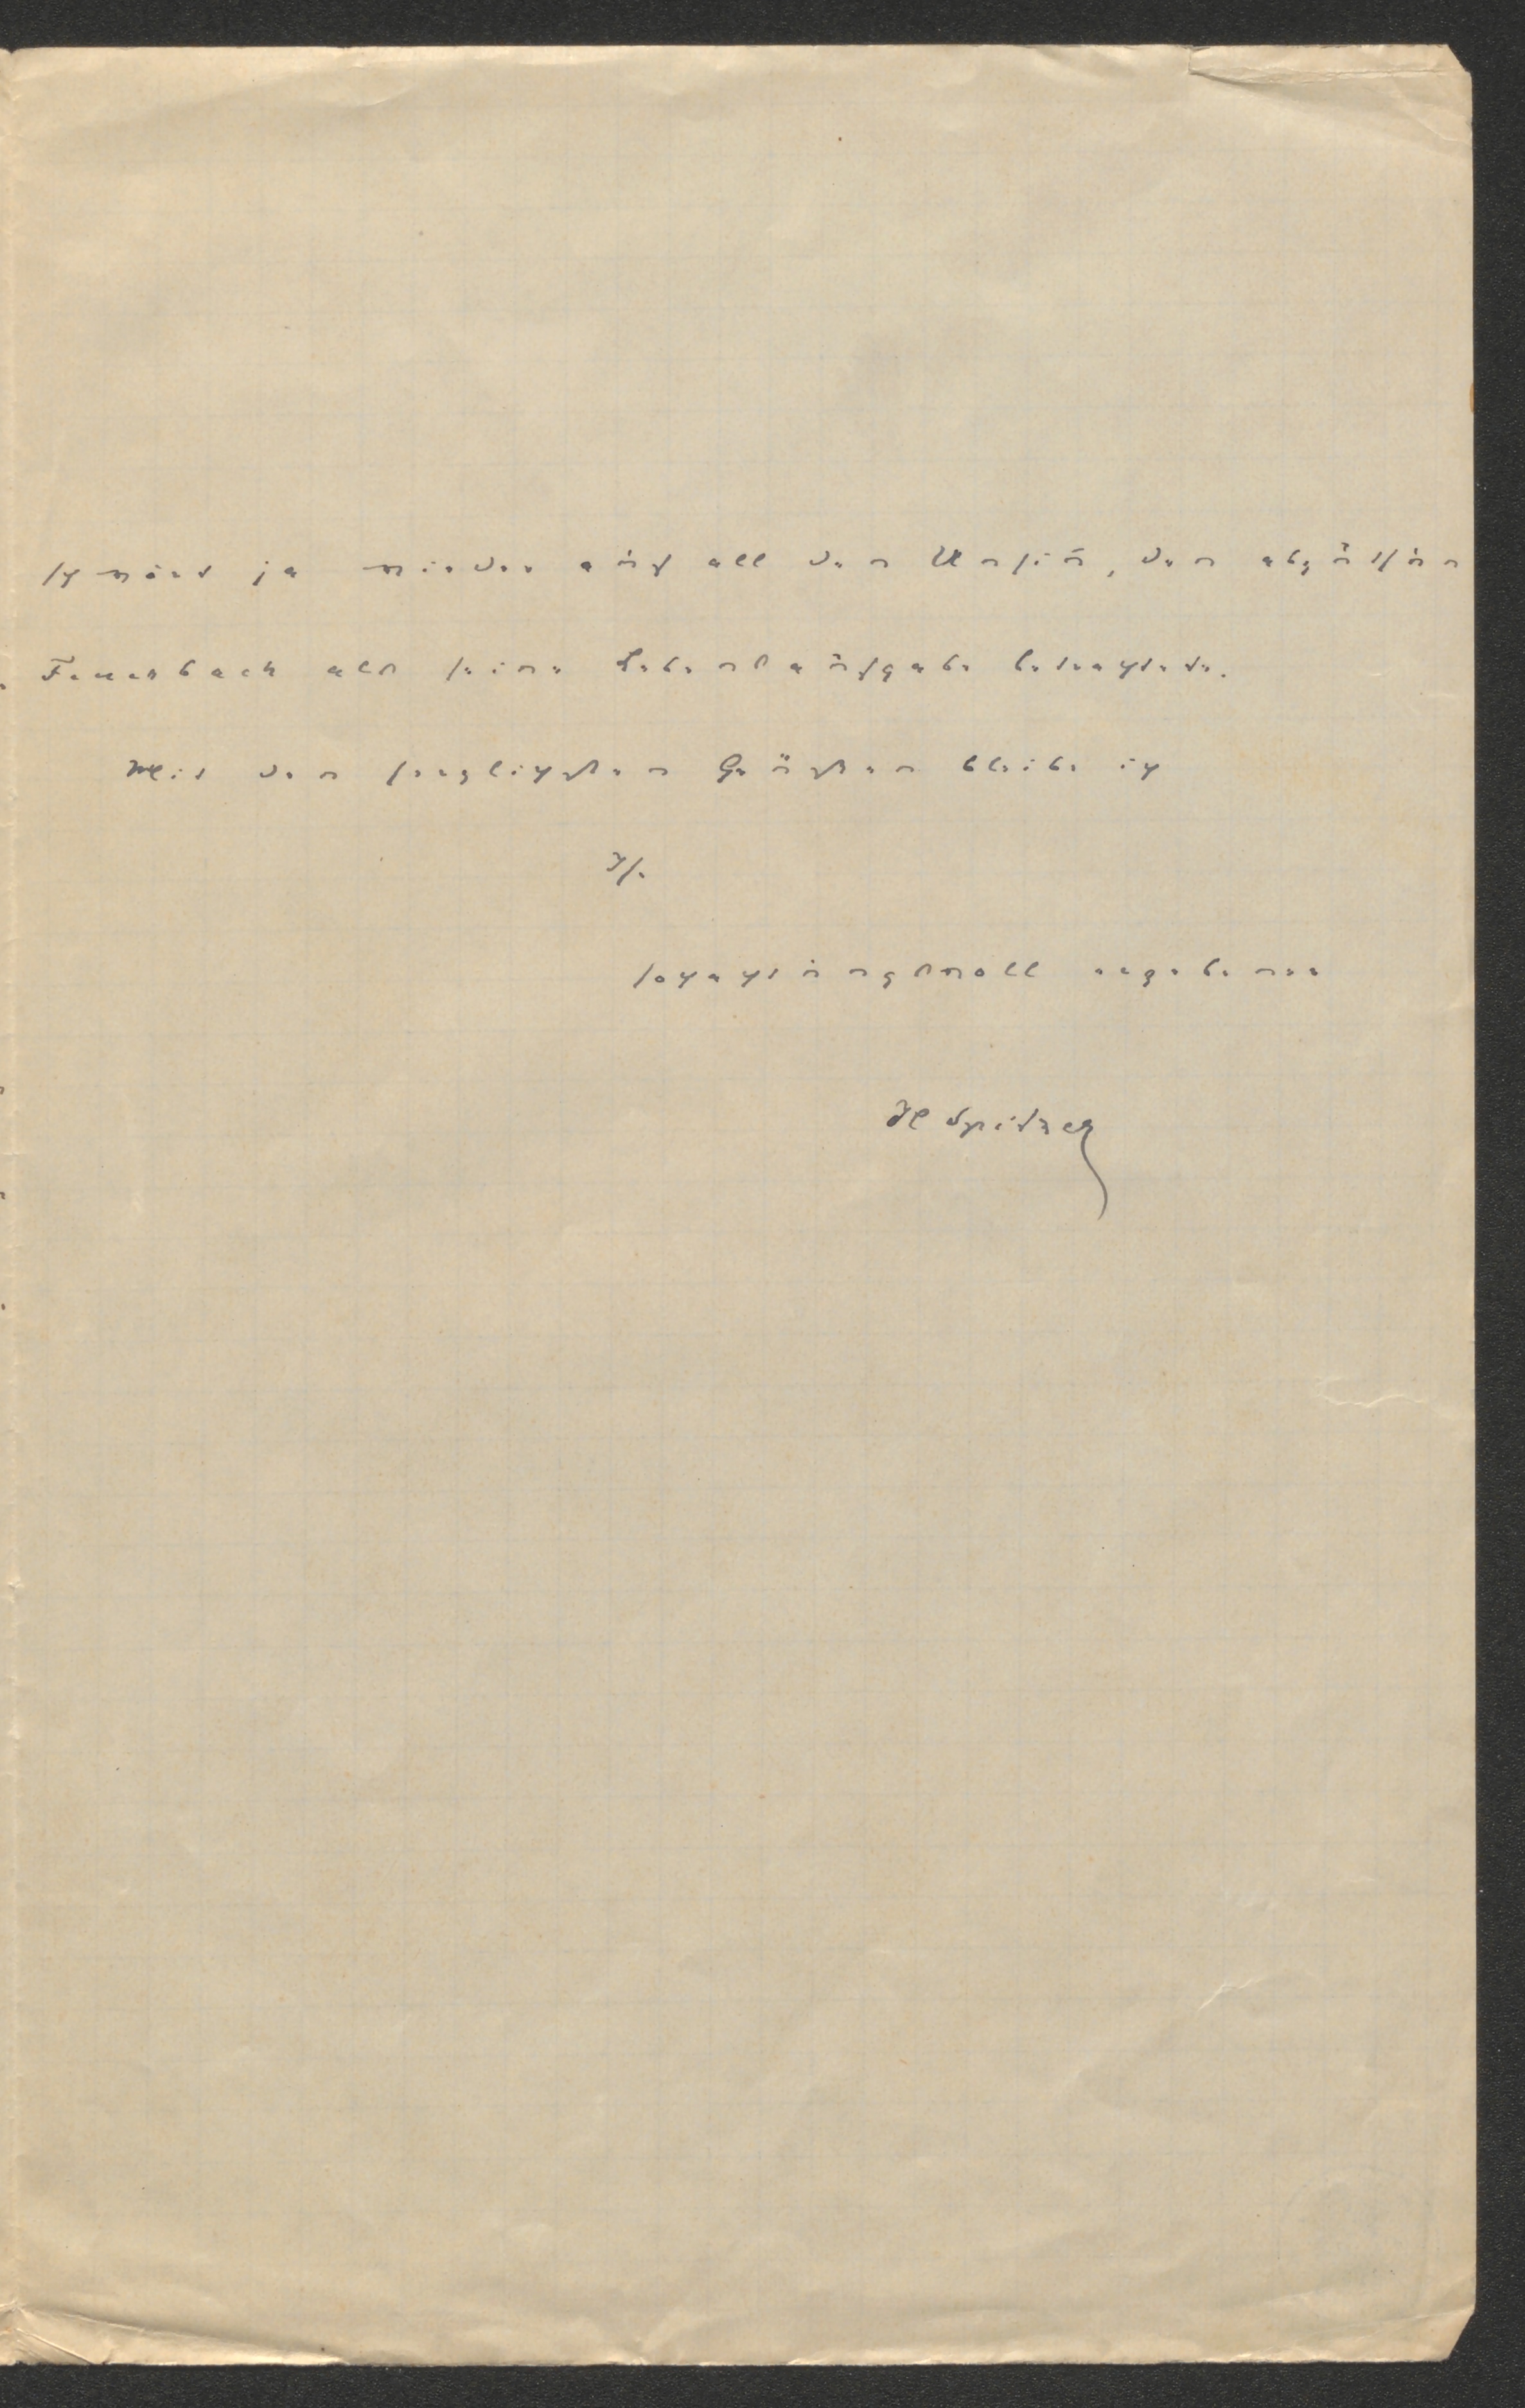 schwört ja wieder auf all den Unsin̅, den abzutun
Feuerbach als seine Lebensaufgabe betrachtete.
Mit den herzlichsten Grüßen bleibe ich
Ihr
hochachtungsvoll ergebener
H Spitzer